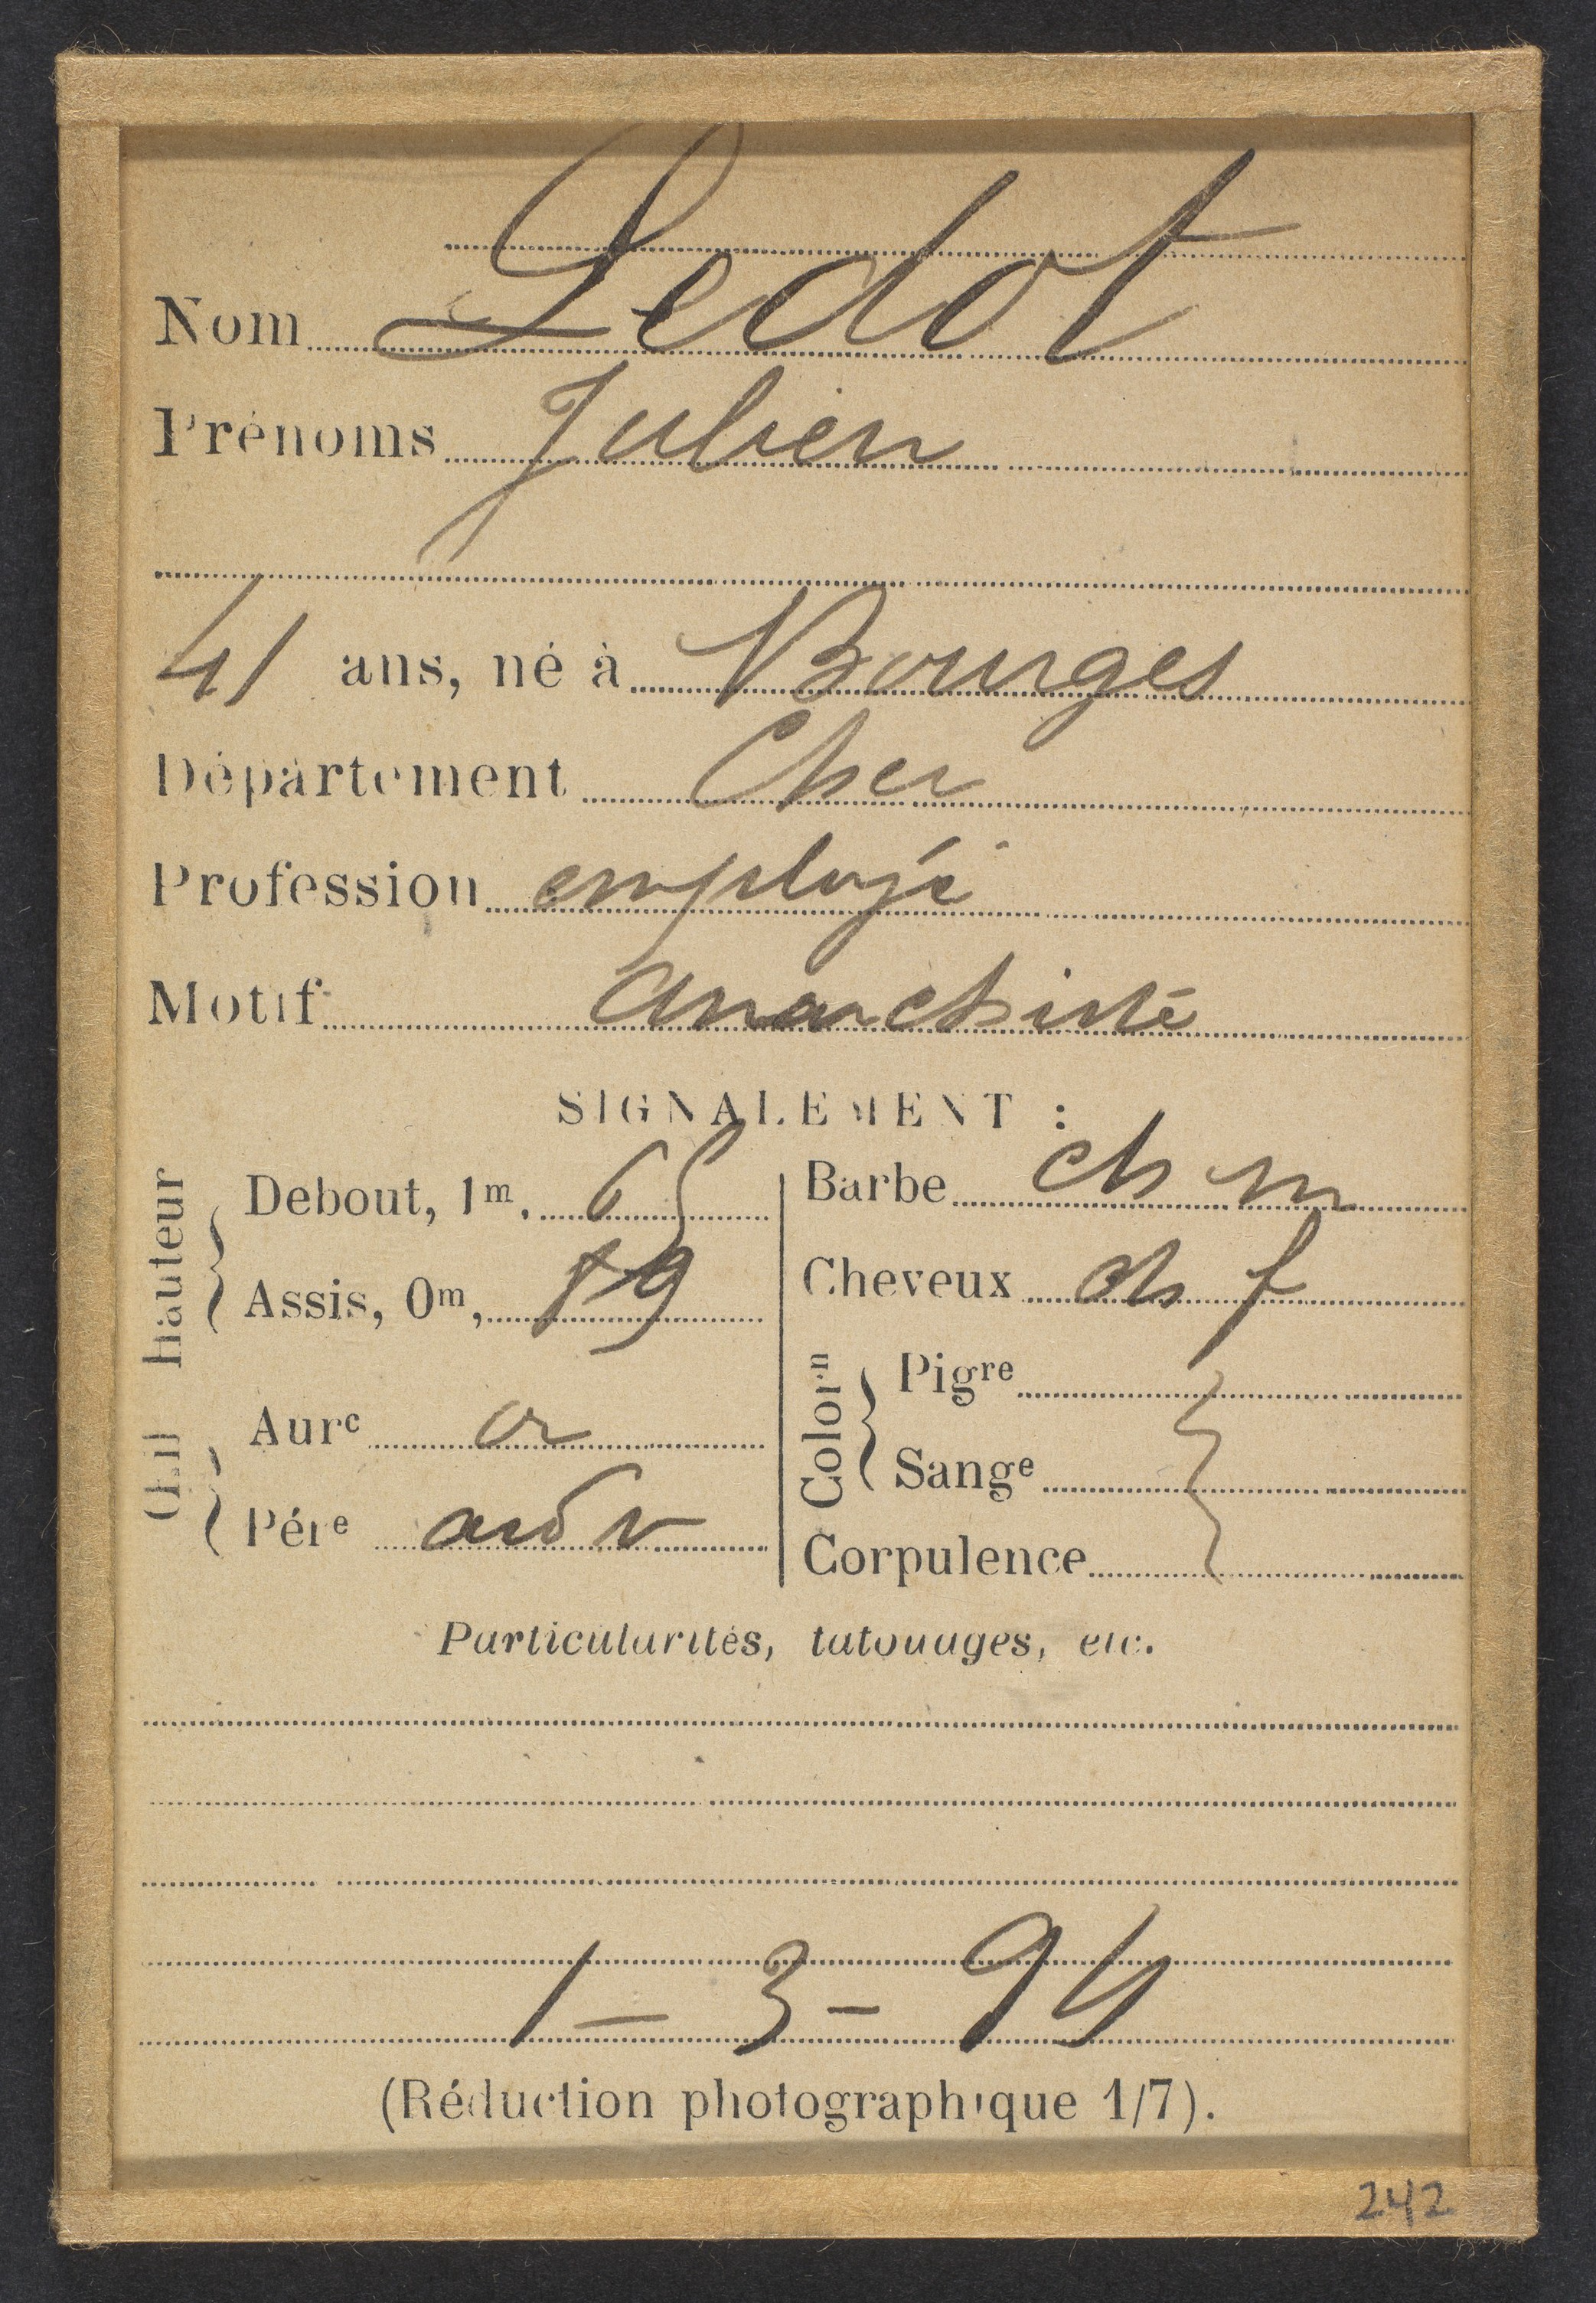 Nom Ledot
Prénoms Julien
41 ans, né à Bourges
Département Cher
Profession employé
Motif anarchiste
SIGNALEMENT :
Hauteur
Debout, 1m, 65
Assis, 0m, 89
Œil
Aure or
Pére
Barbe ch m
Cheveux ch f
Colorn
Pigre
Sange
Corpulence
Particularités, tatouages, etc.
1 - 3 - 94
(Réduction photographique 1/7).
242